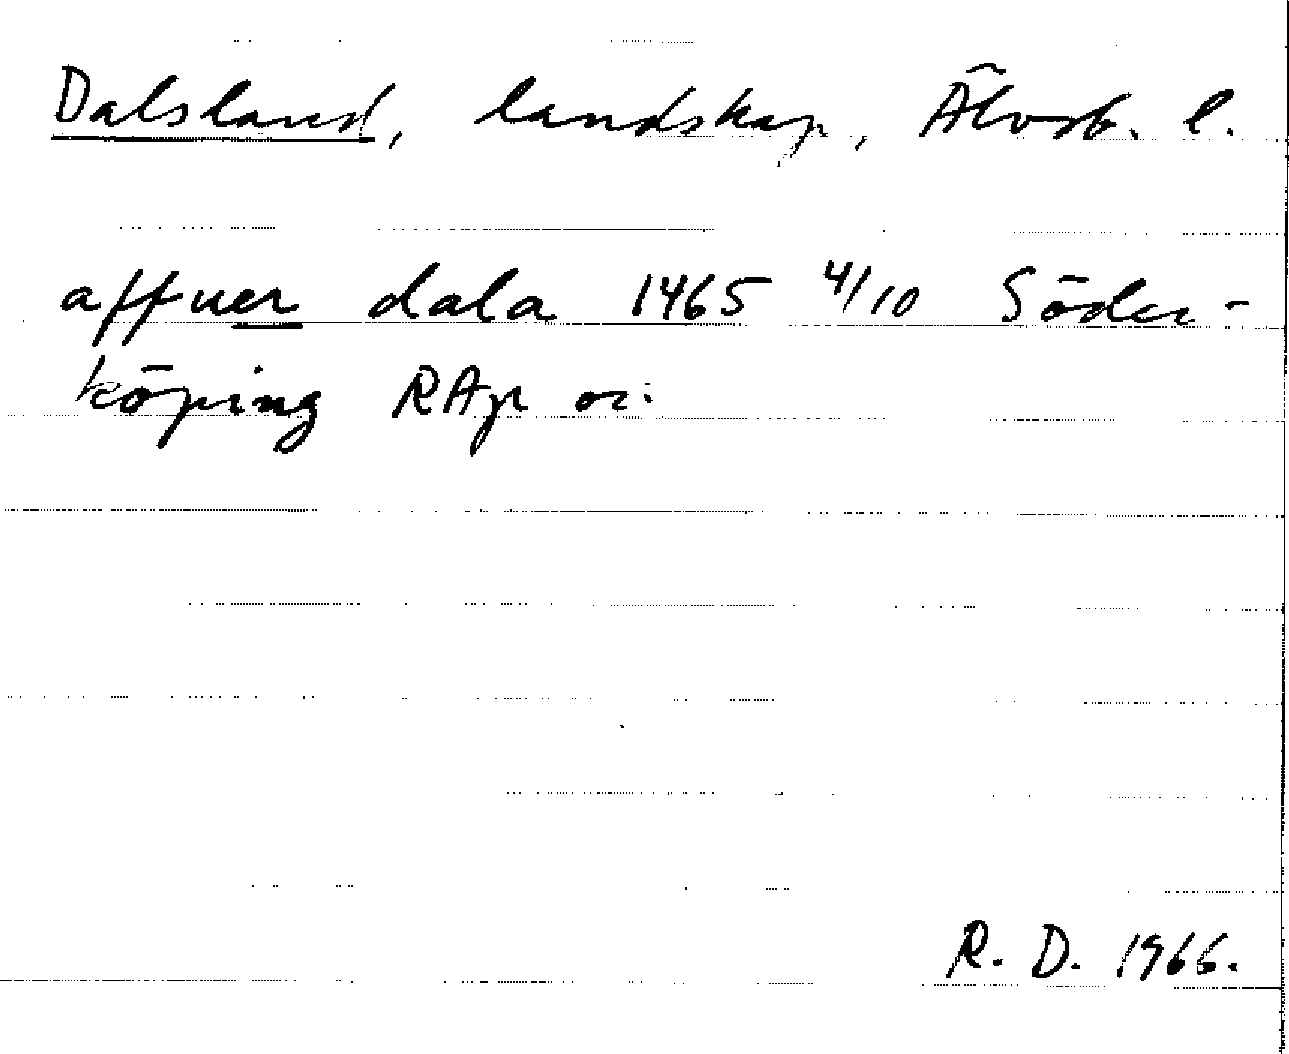 Dalsland, landskap, Älvsb. l.
affuer dala 1465 4/10 Söder-
köping RAp or.
R. D. 1966.